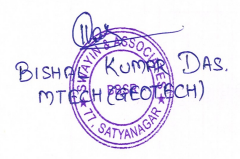 BISHAL KUMAR DAS.
MTECH (GEOTECH)
SWAYIN & ASSOCIATES
BBSR
77, SATYANAGAR